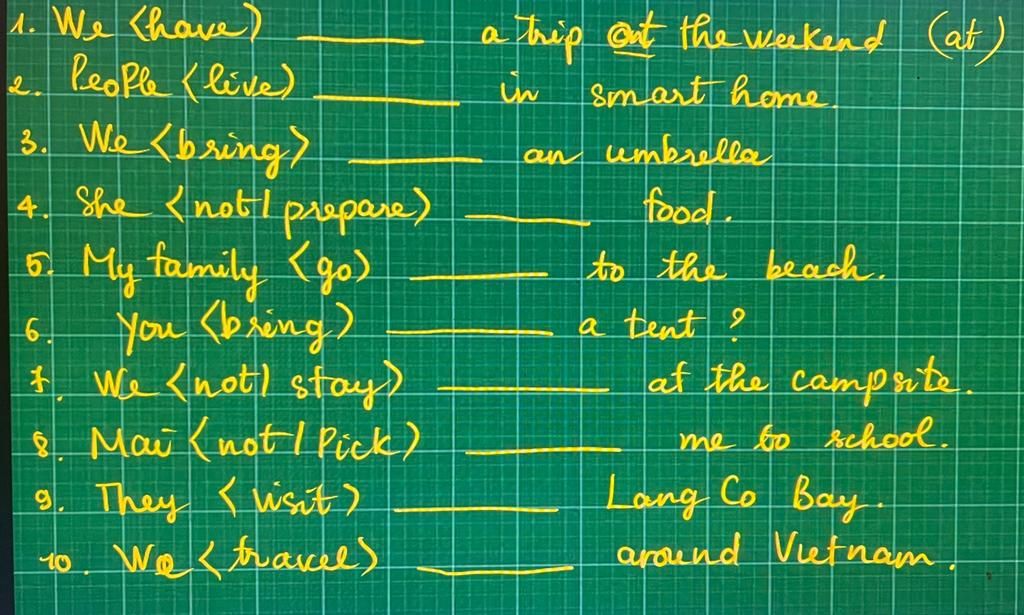 1. We <have) ________ a trip at the weekend (at)
2. People <live) ________ in smart home.
3. We <bring> ________ an umbrella
4. She <not/ prepare) ________ food.
5. My family <go) ________ to the beach.
6. You <bring) ________ a tent ?
7. We <not/ stay) ________ at the campsite.
8. Mai <not/ Pick) ________ me to school.
9. They <visit) ________ Lang Co Bay.
10. We <travel) ________ around Vietnam.